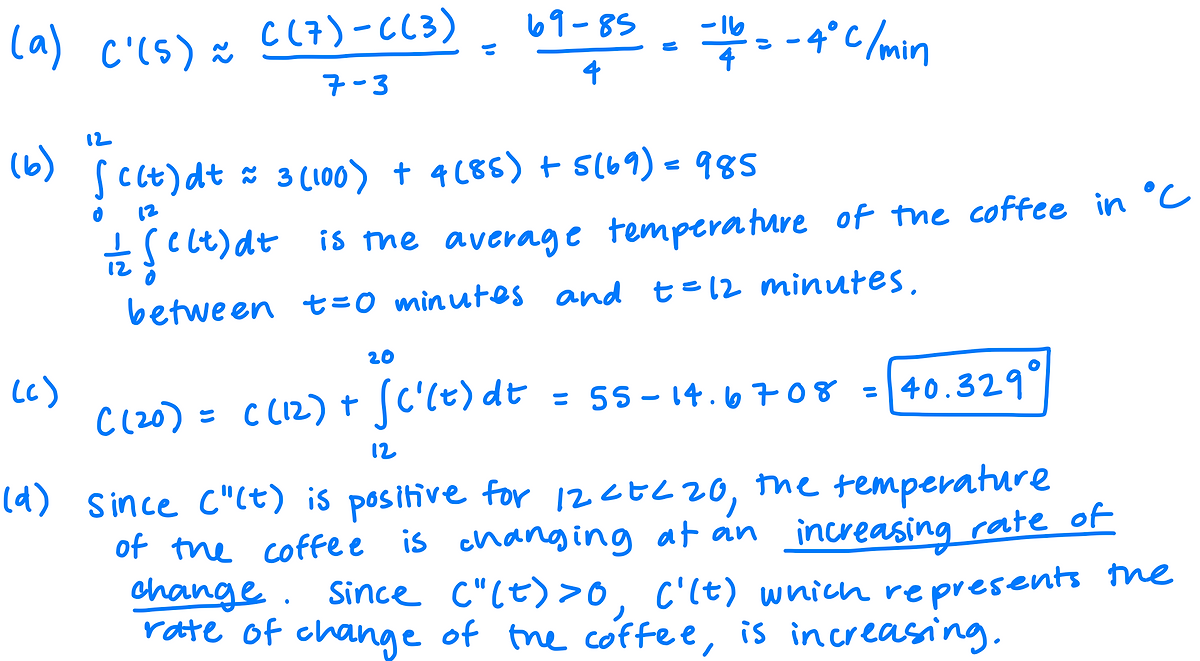 (a) C'(5) ≈ C(7)-C(3) / 7-3 = 69-85 / 4 = -16 / 4 = -4°C/min
(b) ∫₀¹² C(t)dt ≈ 3(100) + 4(85) + 5(69) = 985
1/12 ∫₀¹² C(t)dt is the average temperature of the coffee in °C
between t=0 minutes and t=12 minutes.
(c) C(20) = C(12) + ∫₁₂²⁰ C'(t) dt = 55-14.6708 = 40.329°
(d) Since C"(t) is positive for 12<t<20, the temperature
of the coffee is changing at an increasing rate of
change. Since C"(t)>0, C'(t) which represents the
rate of change of the coffee, is increasing.